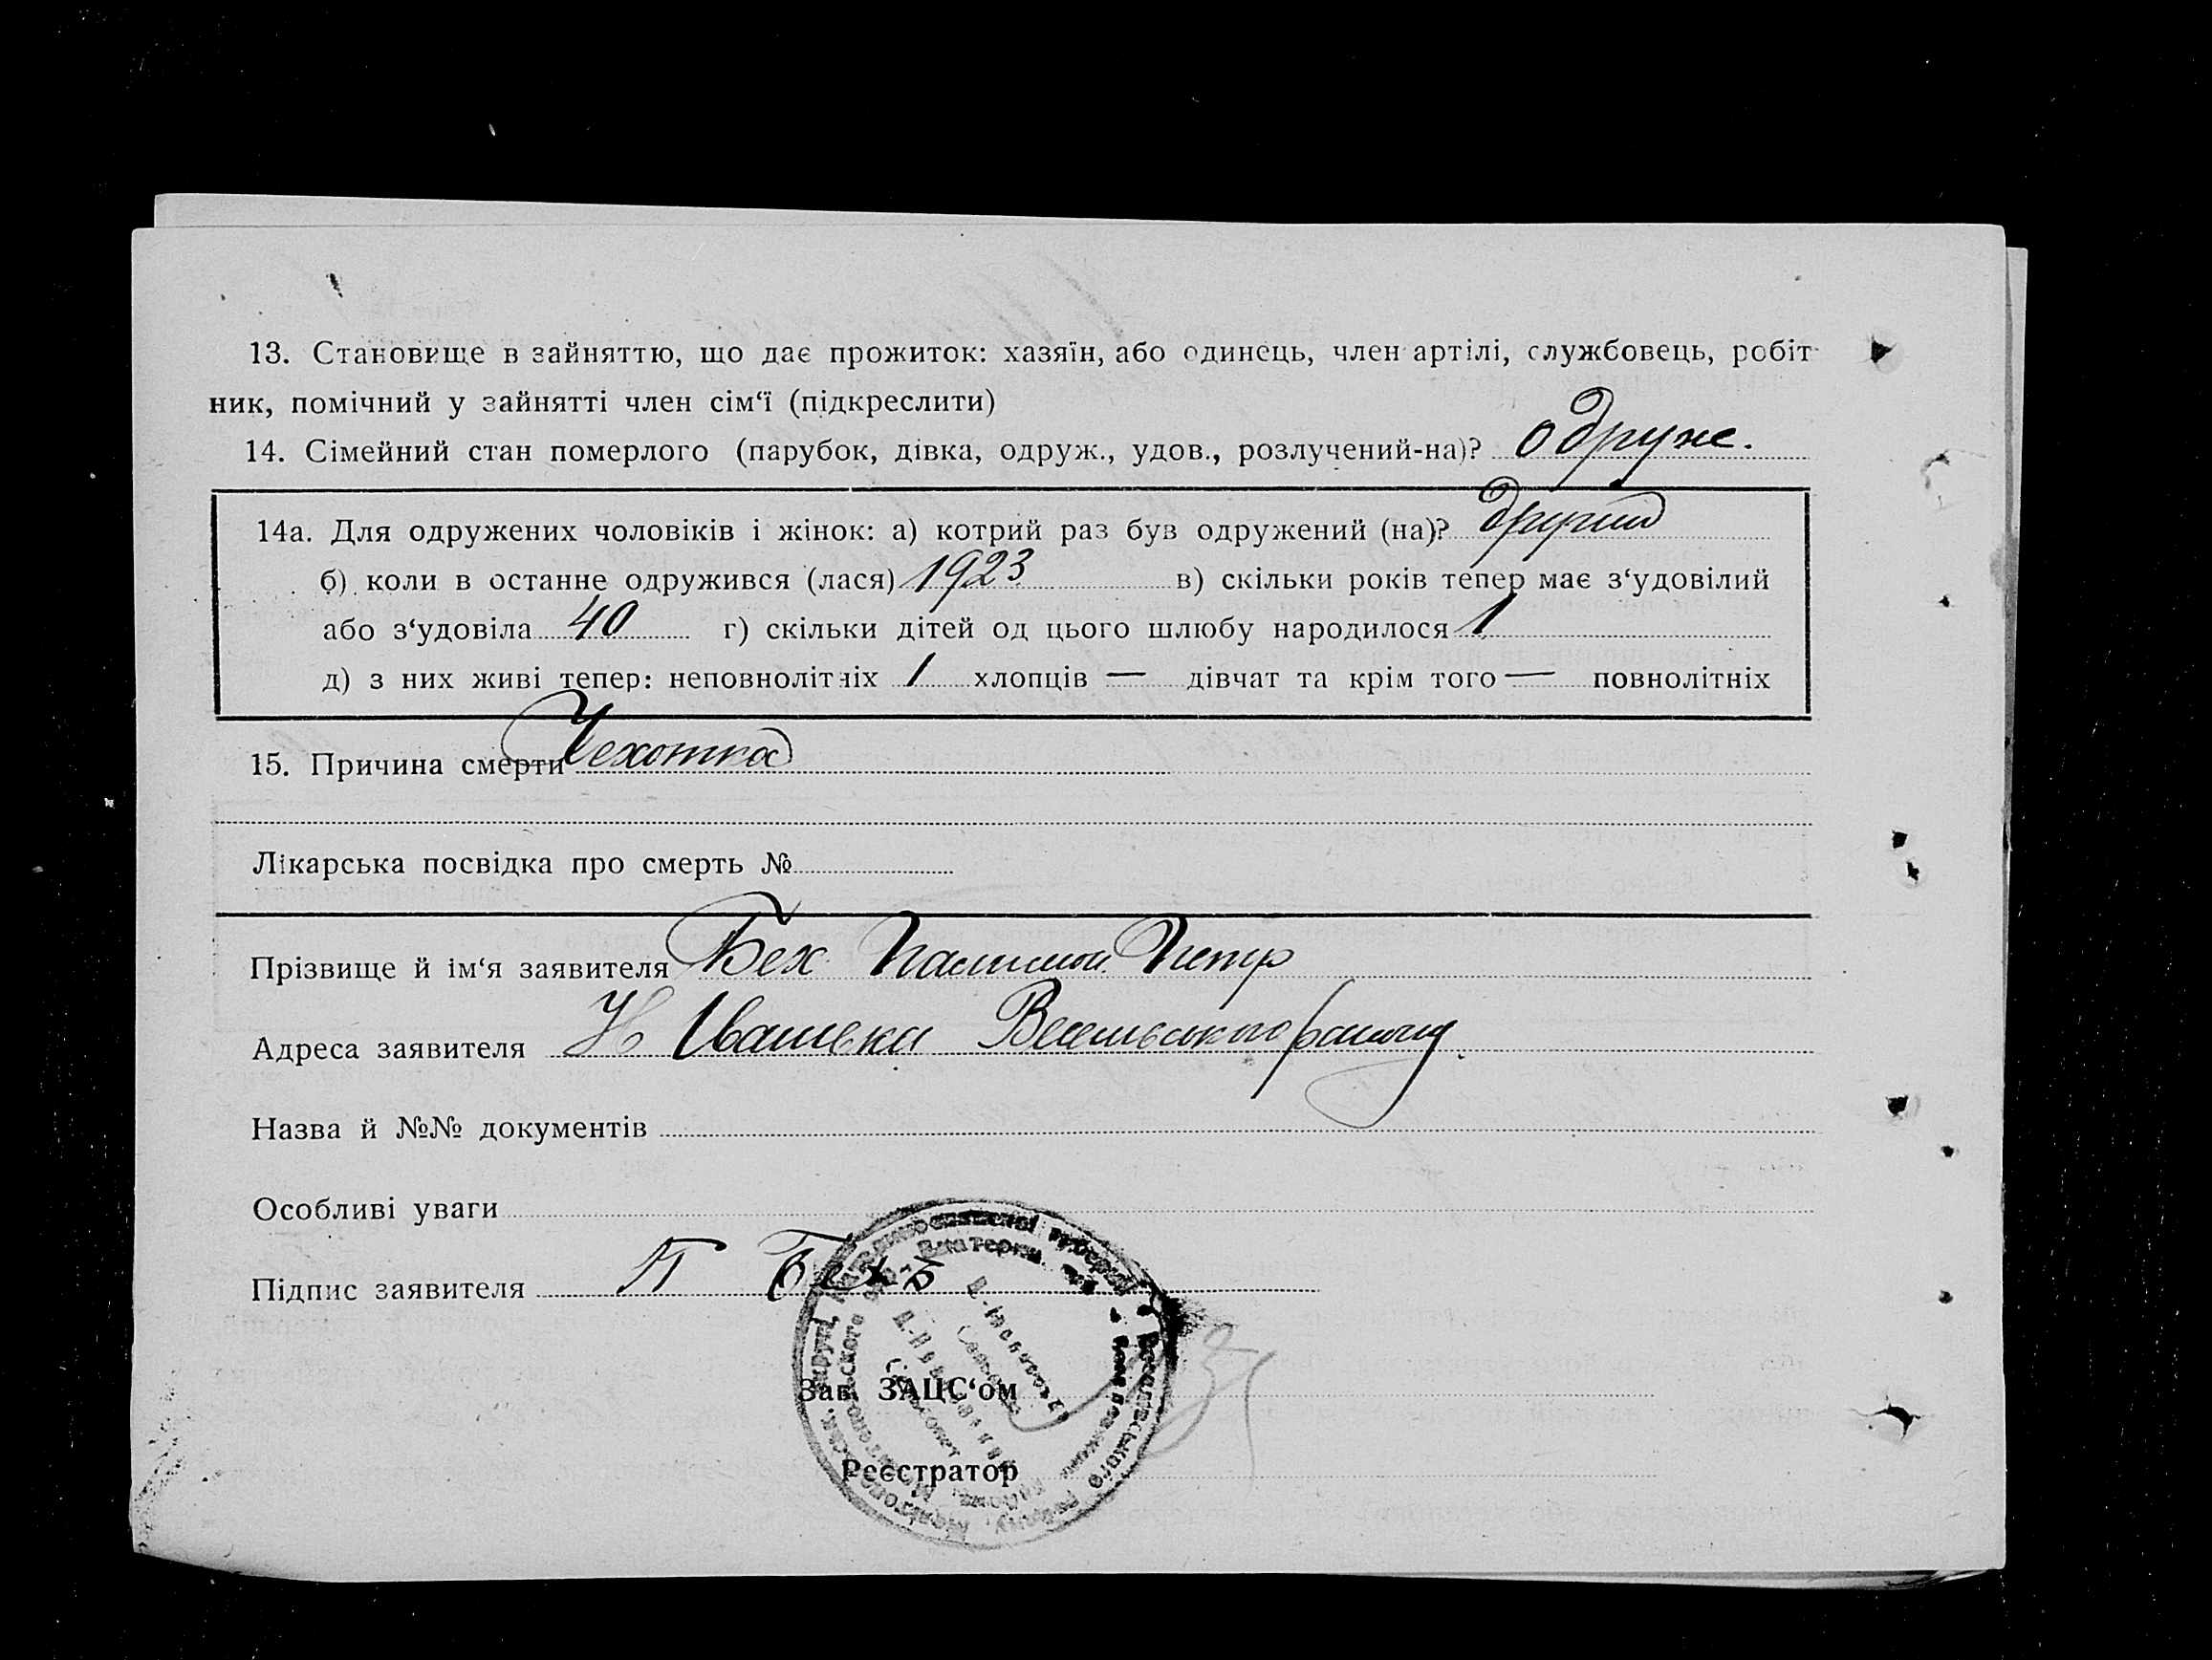 13. Становище в зайняттю, що дає прожиток: хазяїн, або одинець, член артілі, службовець, робіт-
ник, помічний у зайнятті член сім‘ї (підкреслити)
14. Сімейний стан померлого (парубок, дівка, одруж., удов., розлучений-на)? одруже.
14а. Для одружених чоловіків і жінок: а) котрий раз був одружений (на)? другий
б) коли в останне одружився (лася) 1923 в) скільки років тепер має з‘удовілий
або з‘удовіла 40 г) скільки дітей од цього шлюбу народилося 1
д) з них живі тепер: неповнолітніх 1 хлопців — дівчат та крім того — повнолітніх
15. Причина смерти Чехотка
Лікарська посвідка про смерть №
Прізвище й ім‘я заявителя Бех Петр
Адреса заявителя Н Іванівки Веселівського району
Назва й №№ документів
Особливі уваги
Підпис заявителя П Бехъ
Зав. ЗАЦС‘ом
Реєстратор